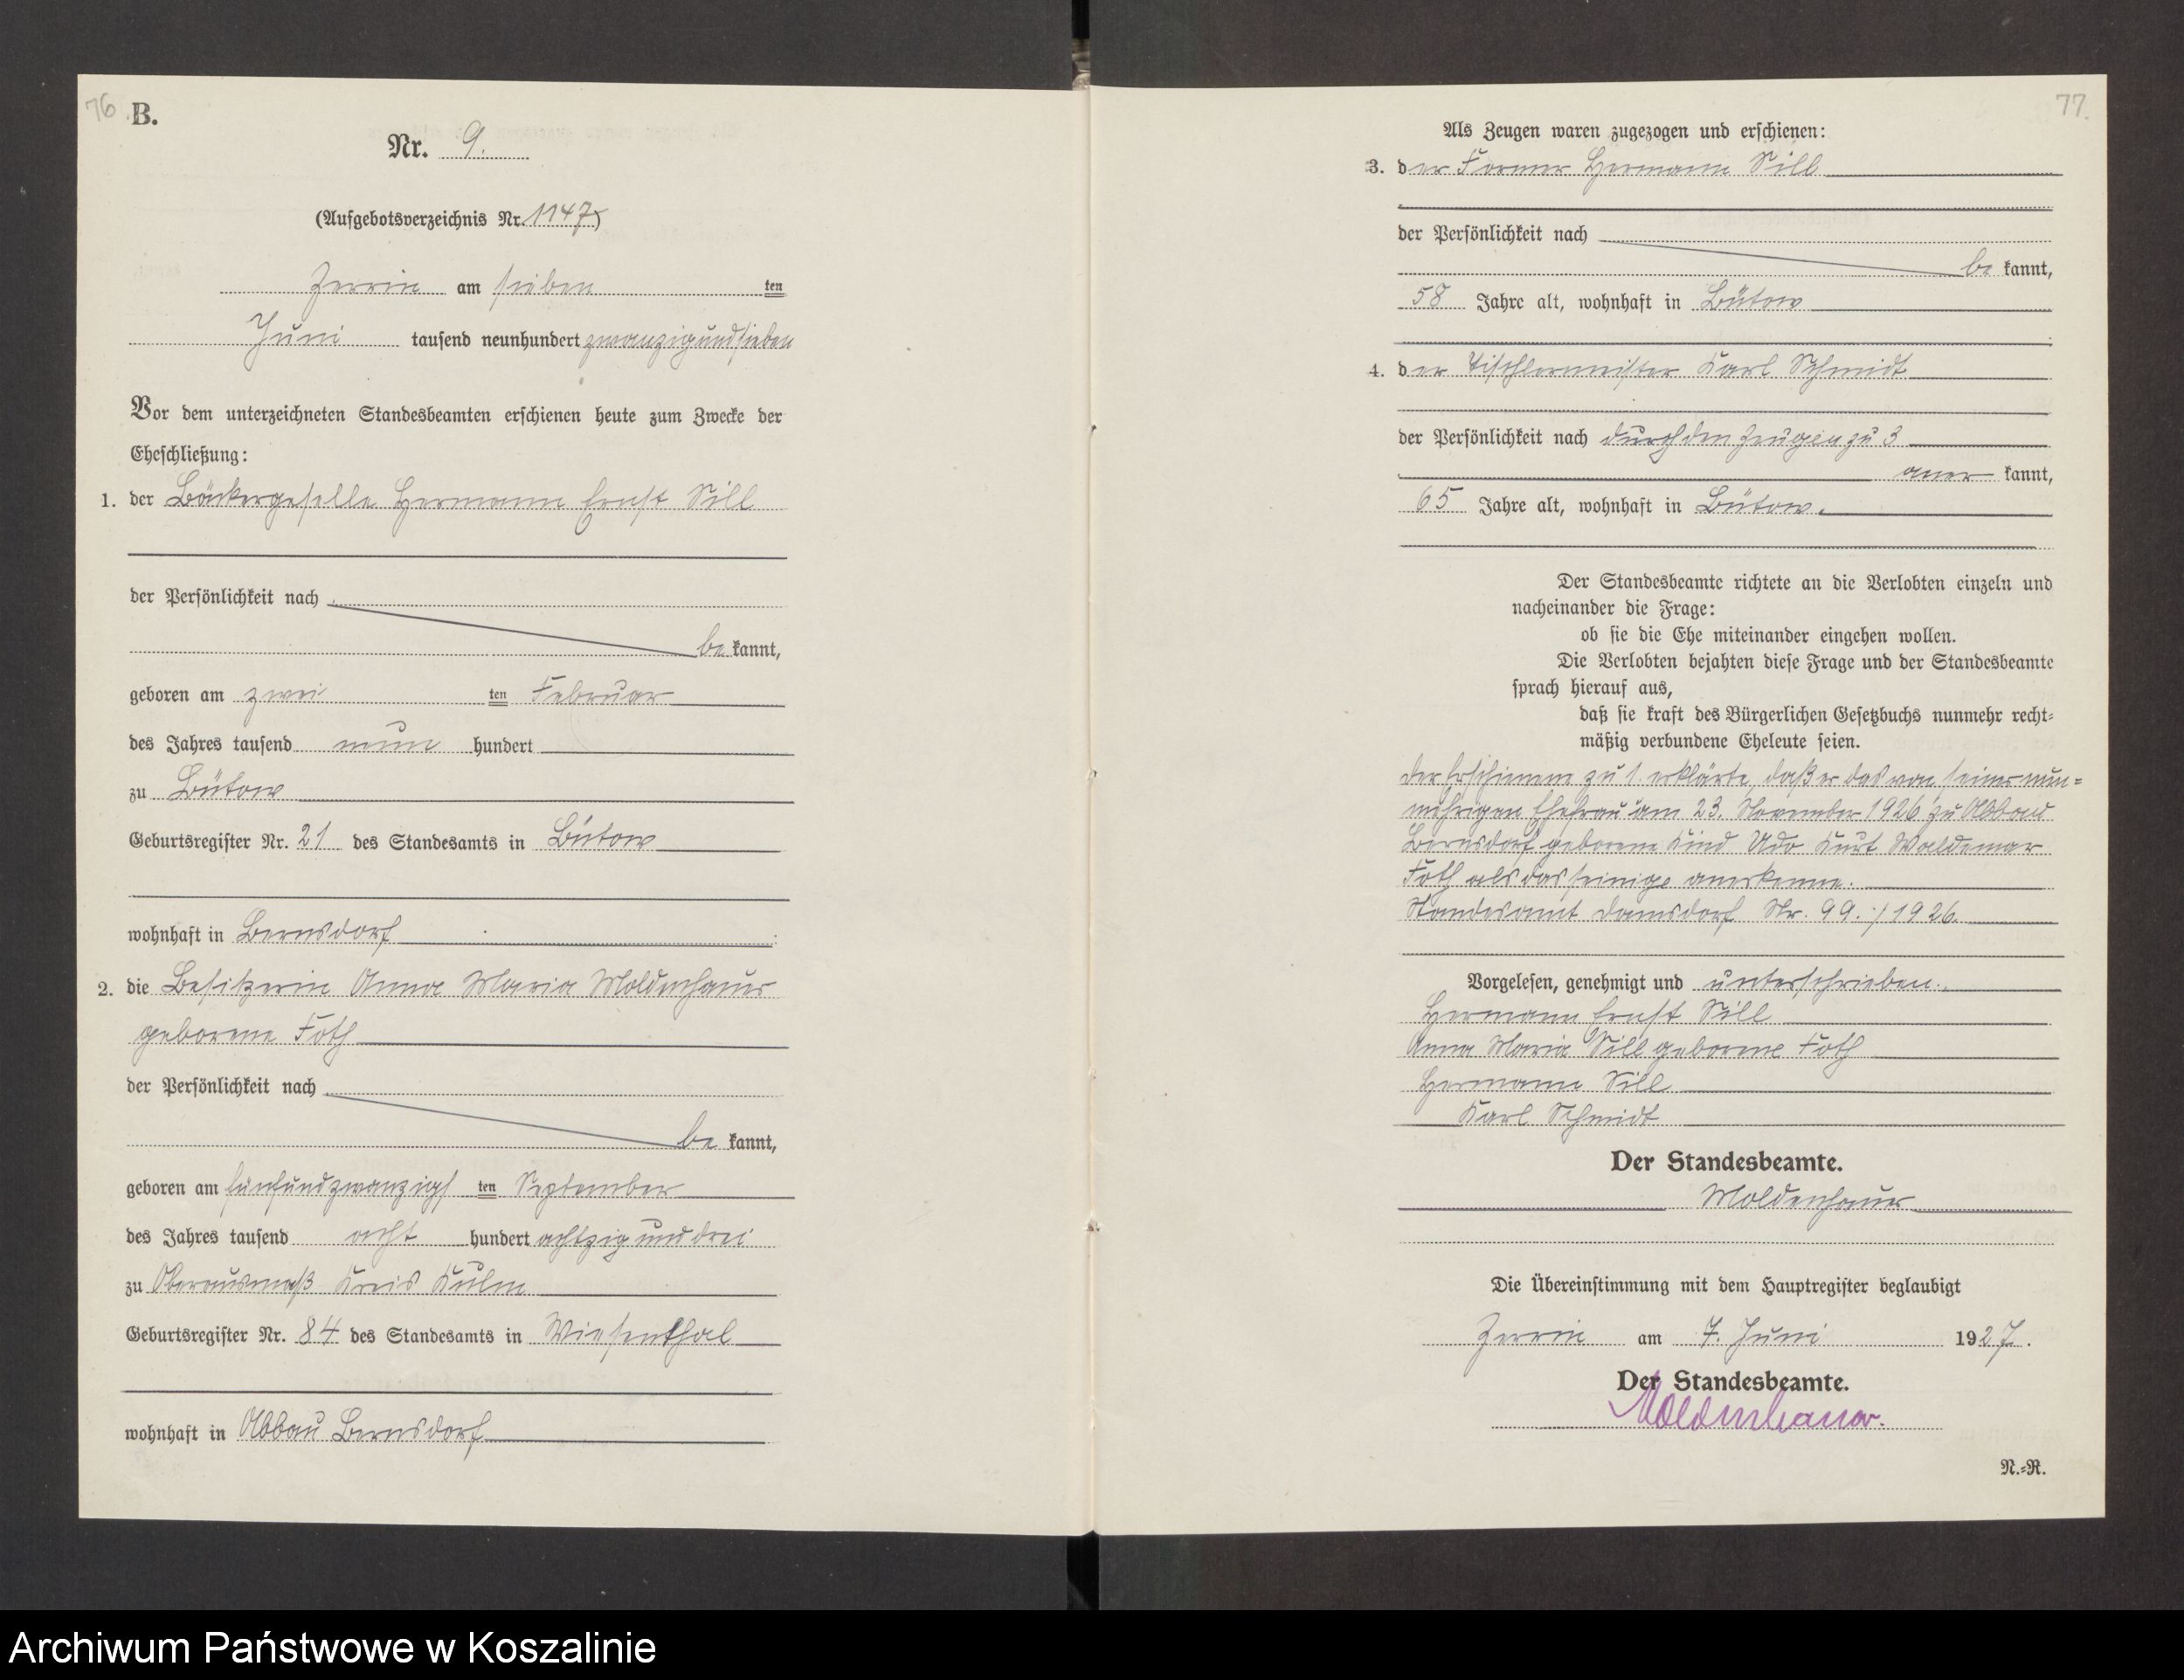 76
B.
Nr. 9.
(Aufgebotsverzeichnis Nr. 1147)
Zerrin am sieben ten
Juni tausend neunhundert zwanzigundsieben
Vor dem unterzeichneten Standesbeamten erschienen heute zum Zwecke der
Eheschließung:
1. der Bäckergeselle Hermann Ernst Sill
der Persönlichkeit nach
be kannt,
geboren am zwei ten Februar
des Jahres tausend neun hundert
zu Bütow
Geburtsregister Nr. 21 des Standesamts in Bütow
wohnhaft in Bernsdorf
2. die Besitzerin Anna Maria Moldenhauer
geborene Foth
der Persönlichkeit nach
be kannt,
geboren am fünfundzwanzigs ten September
des Jahres tausend acht hundert achtzig und drei
zu Oberausmaß Kreis Kulm
Geburtsregister Nr. 84 des Standesamts in Wiesenthal
wohnhaft in Abbau Bernsdorf
77.
Als Zeugen waren zugezogen und erschienen:
3. der Former Hermann Sill
der Persönlichkeit nach
be kannt,
58 Jahre alt, wohnhaft in Bütow
4. der Tischlermeister Karl Schmidt
der Persönlichkeit nach durch den Zeugen zu 3
aner kannt,
65 Jahre alt, wohnhaft in Bütow.
Der Standesbeamte richtete an die Verlobten einzeln und
nacheinander die Frage:
ob sie die Ehe miteinander eingehen wollen.
Die Verlobten bejahten diese Frage und der Standesbeamte
sprach hierauf aus,
daß sie kraft des Bürgerlichen Gesetzbuchs nunmehr recht-
mäßig verbundene Eheleute seien.
der Erschienene zu 1. erklärte, daß er das von seiner nun-
mehrigen Ehefrau am 23. November 1926 zu Abbau
Bernsdorf geborene Kind Udo Kurt Waldemar
Foth als das seinige anerkenne.
Standesamt Damsdorf Nr. 99./1926.
Vorgelesen, genehmigt und unterschrieben.
Hermann Ernst Sill
Anna Maria Sill geborene Foth
Hermann Sill
Karl Schmidt
Der Standesbeamte.
Moldenhauer
Die Übereinstimmung mit dem Hauptregister beglaubigt
Zerrin am 7. Juni 1927.
Der Standesbeamte.
Moldenhauer.
N.-R.
Archiwum Państwowe w Koszalinie